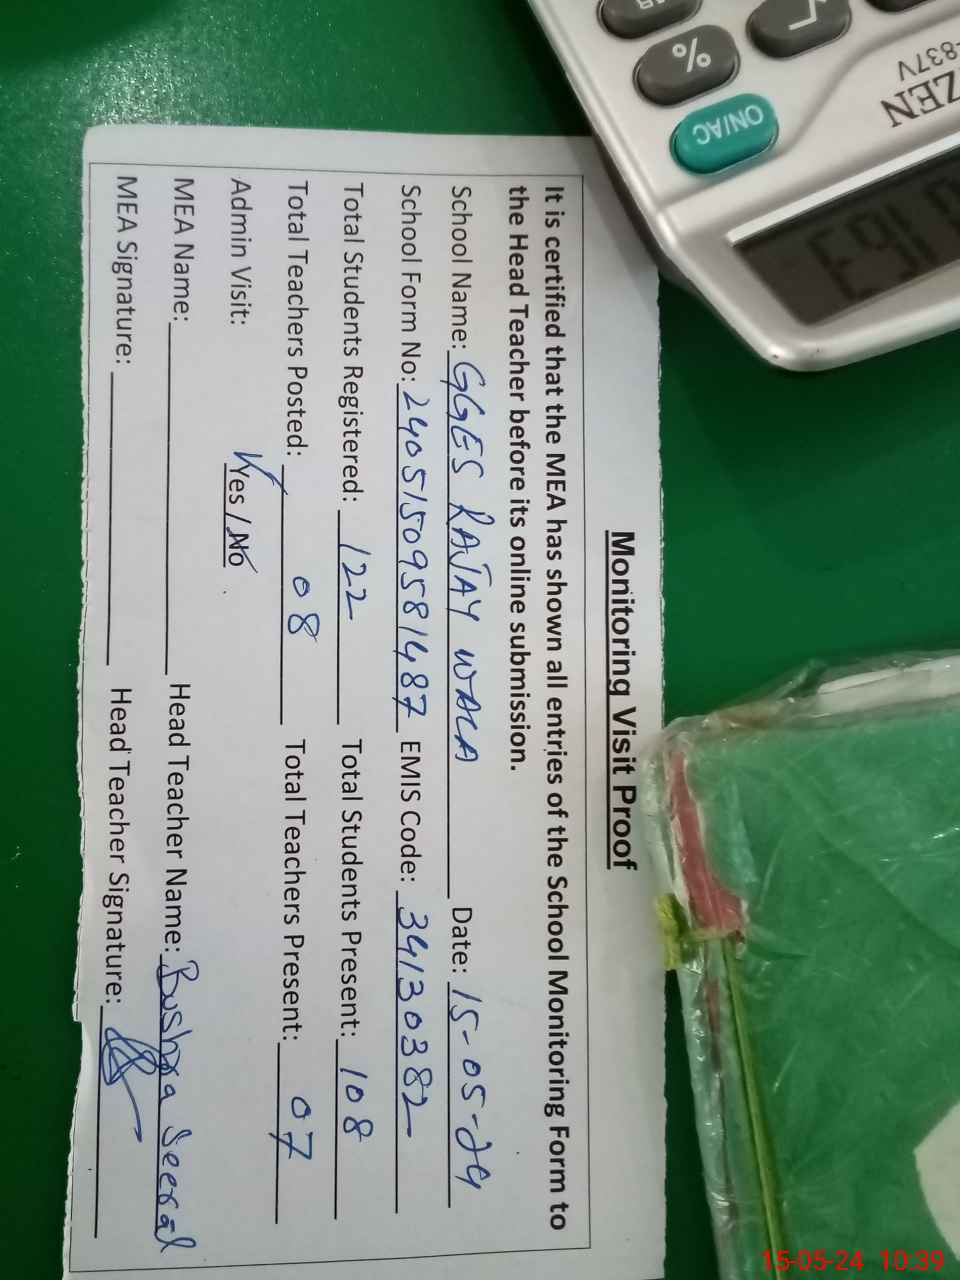 Monitoring Visit Proof
It is certified that the MEA has shown all entries of the School Monitoring Form to
the Head Teacher before its online submission.
School Name: GGES RAJAY WALA Date: 15-05-24
School Form No: 24051509581487 EMIS Code: 34130382
Total Students Registered: 122 Total Students Present: 108
Total Teachers Posted: 08 Total Teachers Present: 07
Admin Visit: Yes / No
MEA Name: Head Teacher Name: Bushra Seeral
MEA Signature: Head Teacher Signature:
%
ON/AC
837V
ZEN
15-05-24 10:39